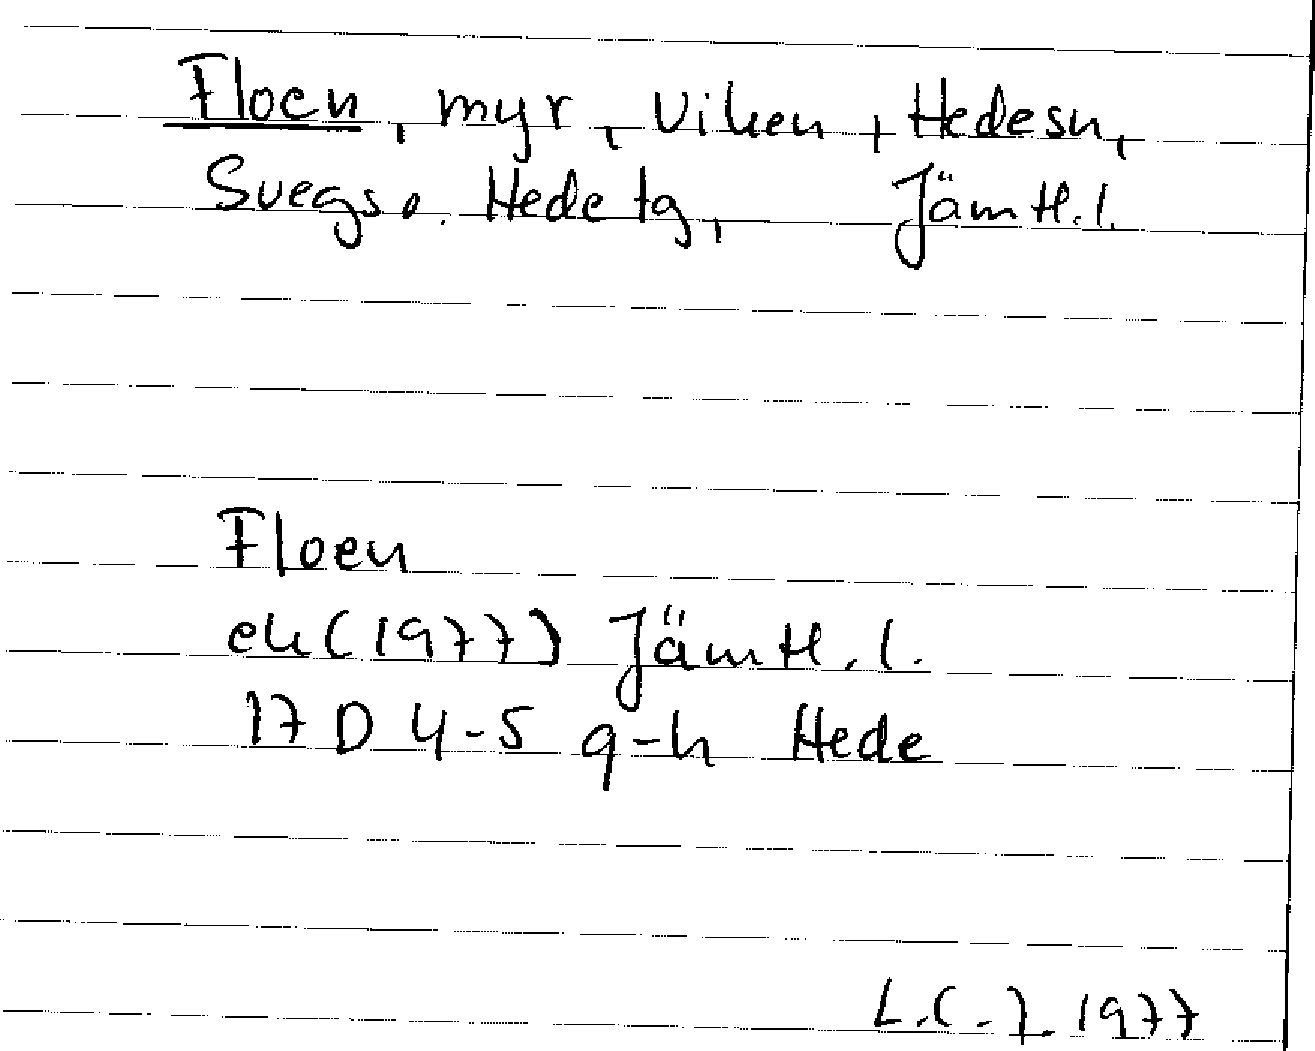 Floen, myr, Viken, Hedesn,
Svegs o. Hede tg, Jämtl.l.
Floen
ek (1977) Jämtl.l.
17 D 4-5 g-h Hede
L.C.J. 1977